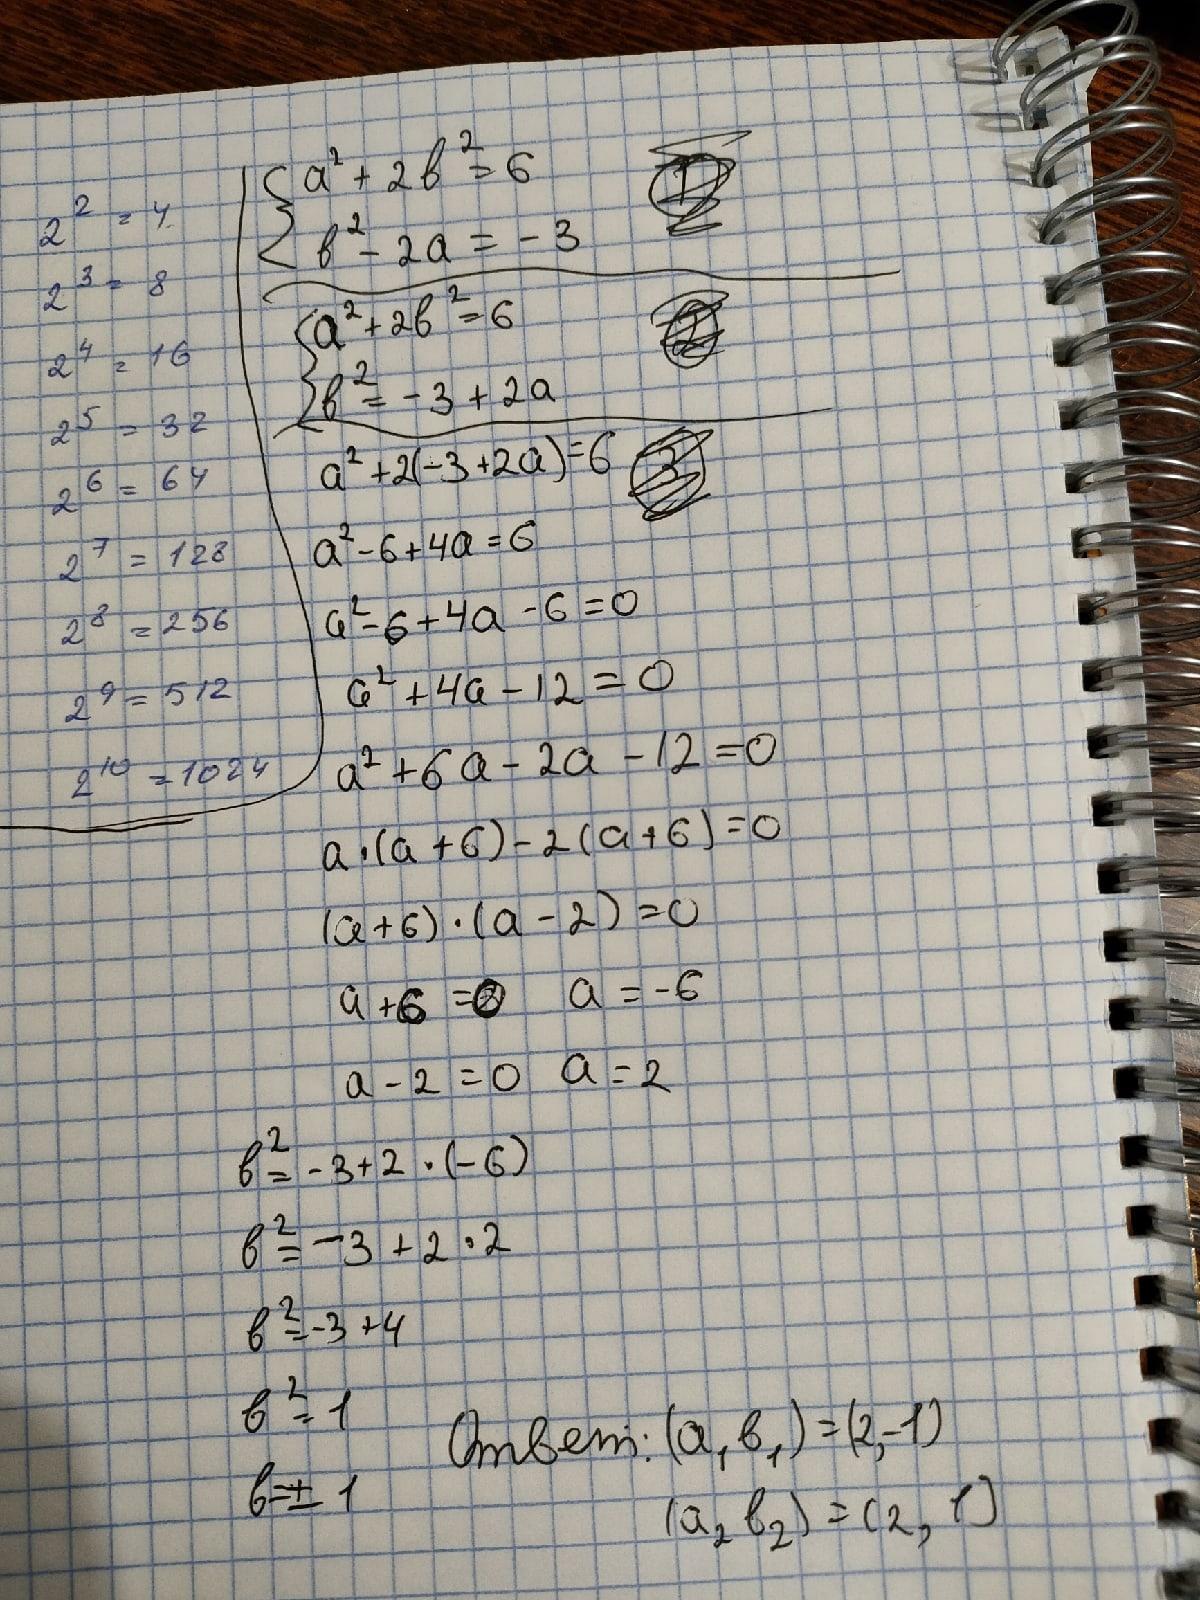 2² = 4
2³ = 8
2⁴ = 16
2⁵ = 32
2⁶ = 64
2⁷ = 128
2⁸ = 256
2⁹ = 512
2¹⁰ = 1024
a² + 2в² = 6 1
в² - 2a = -3
a² + 2в² = 6 2
в² = -3 + 2a
a² + 2(-3 + 2a) = 6 3
a² - 6 + 4a = 6
a² - 6 + 4a - 6 = 0
a² + 4a - 12 = 0
a² + 6a - 2a - 12 = 0
a · (a + 6) - 2(a + 6) = 0
(a + 6) · (a - 2) = 0
a + 6 = 0 a = -6
a - 2 = 0 a = 2
в² = -3 + 2 · (-6)
в² = -3 + 2 · 2
в² = -3 + 4
в² = 1
в = ± 1
Ответ: (a₁ в₁) = (2, -1)
(a₂ в₂) = (2, 1)